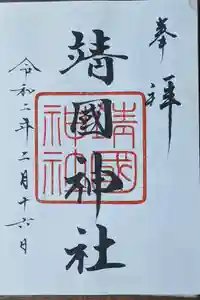 奉拝
靖國神社
靖国神社
令和二年二月十六日